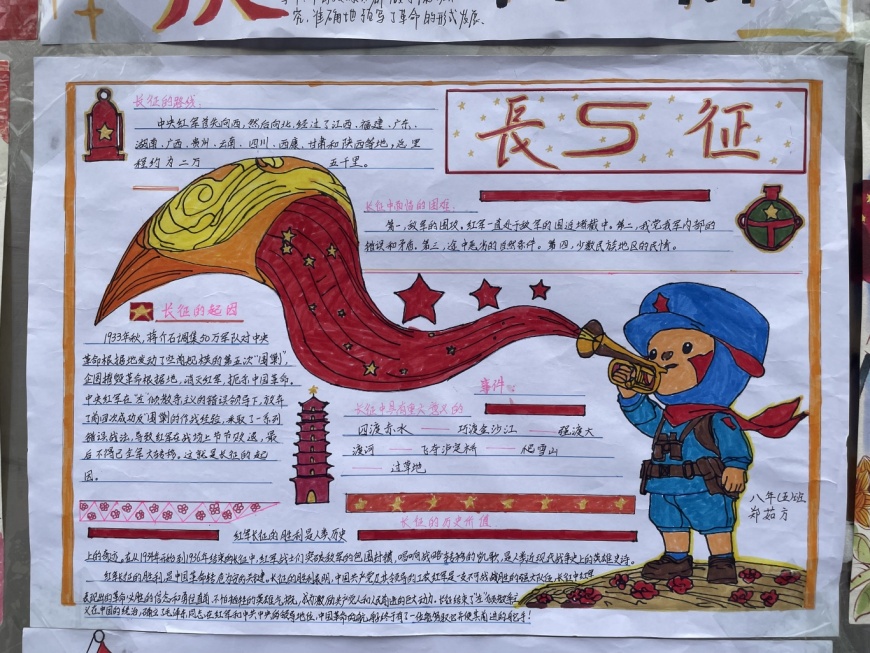 究，准确地预写了革命的形式发展.
長 征
长征的路线：
中央红军首先向西，然后向北，经过了江西、福建、广东、
湖南、广西、贵州、云南、四川、西康、甘肃和陕西等地，总里
程约为二万 五千里。
长征中面临的困难：
第一，敌军的围攻，红军一直处于敌军的围追堵截中。第二，我党我军内部的
错误和矛盾。第三，途中恶劣的自然条件。第四，少数民族地区的民情。
长征的起因
1933年秋，蒋介石调集50万军队对中央
革命根据地发动了空前规模的第五次"围剿"，
企图摧毁革命根据地，消灭红军，扼杀中国革命。
中央红军在"左"倾教条主义的错误领导下，放弃
了前四次成功反"围剿"的作战经验，采取了一系列
错误战法，导致红军在战场上节节败退，最
后不得已全军大转移。这就是长征的起
因。
长征中具有重大意义的
事件：
四渡赤水 —— 巧渡金沙江 —— 强渡大
渡河 —— 飞夺泸定桥 —— 爬雪山
—— 过草地
长征的历史价值
八年（五）班
郑茹方
红军长征的胜利是人类历史
上的奇迹。在从1934年开始到1936年结束的长征中，红军战士们突破敌军的包围封锁，唱响战略转移的凯歌，是人类近现代战争史上的英雄史诗。
红军长征的胜利，是中国革命转危为安的关键。长征的胜利表明，中国共产党及其领导的工农红军是一支不可战胜的强大队伍，长征中红军
表现出的革命必胜的信念和勇往直前、不怕牺牲的英雄气概，成为激励共产党人和人民前进的巨大动力。长征结束了"左"倾教条主
义在中国的统治，确立了毛泽东同志在红军和中共中央的领导地位，中国革命的航船终于有了一位能够驾驭它并使其前进的舵手！